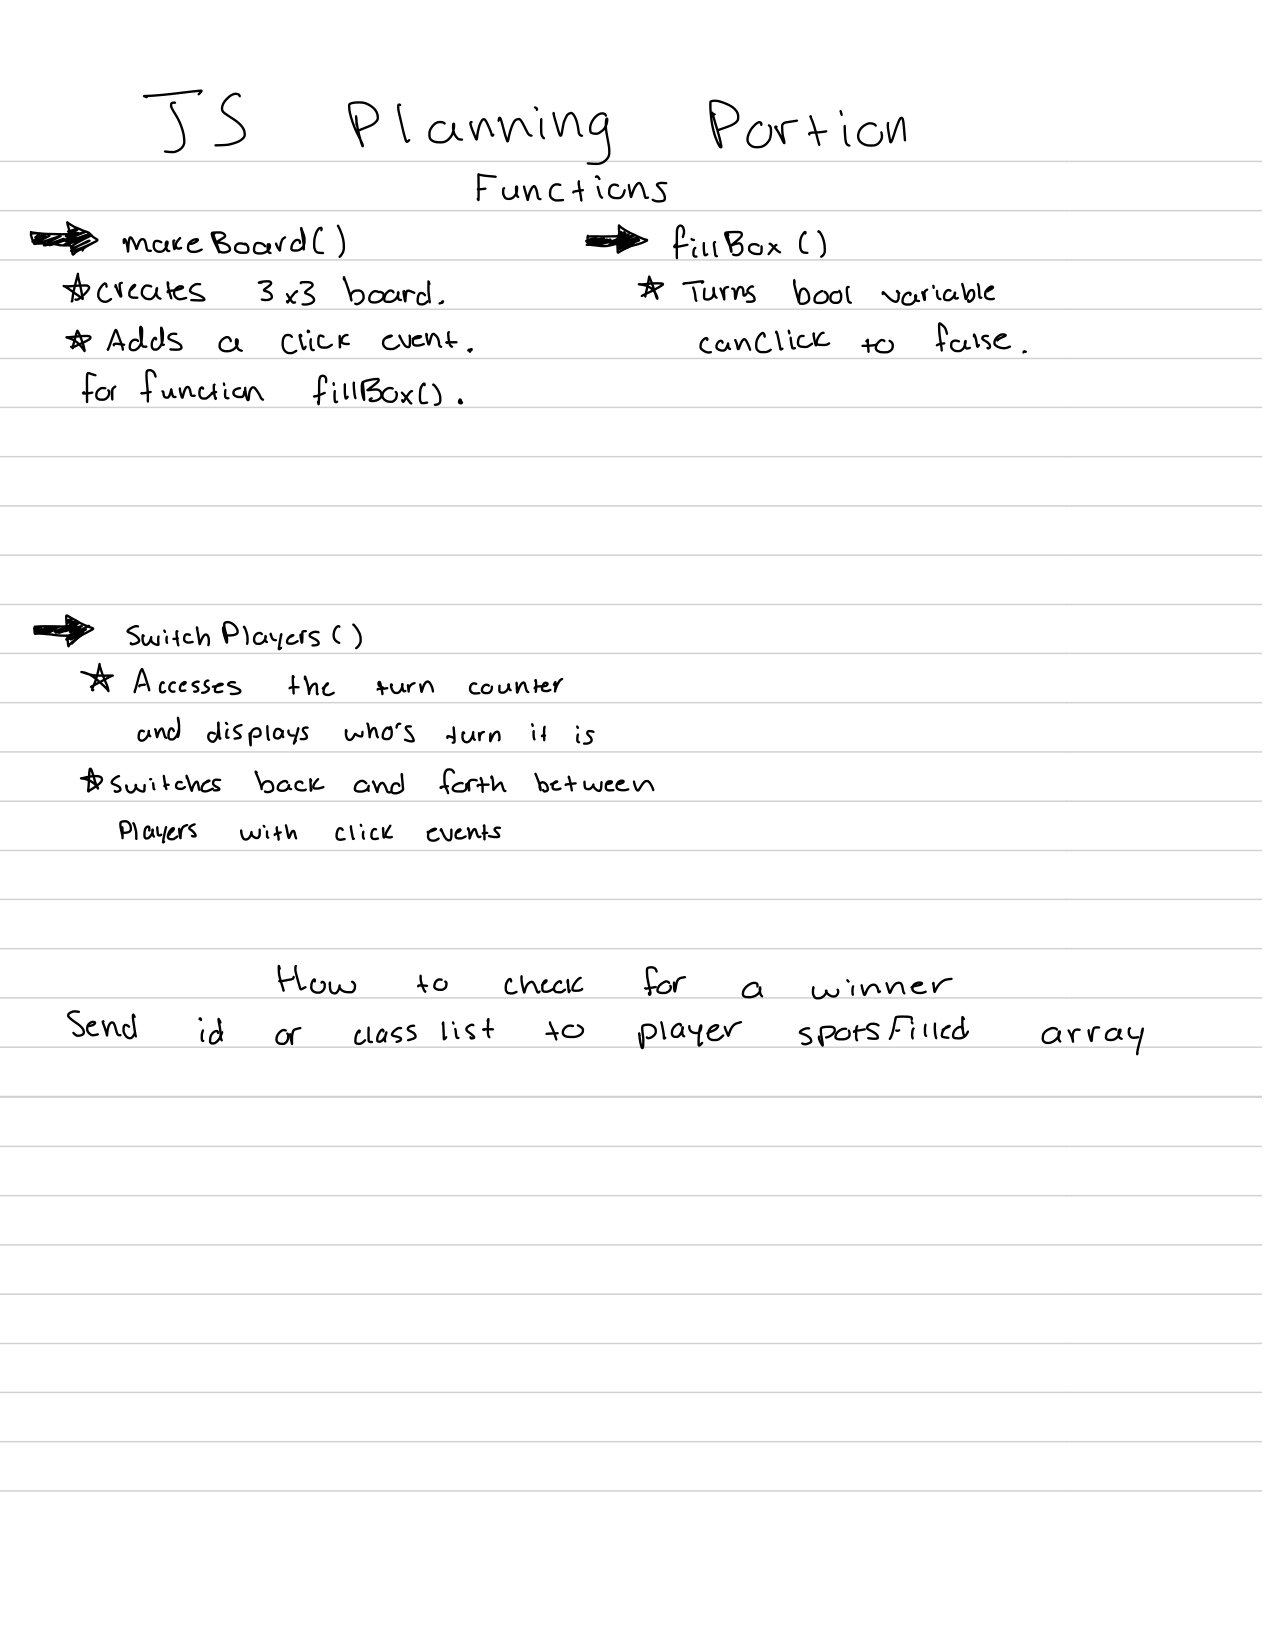 JS Planning Portion
Functions
makeBoard()
creates 3x3 board.
Adds a click event.
for function fillBox().
fillBox()
Turns bool variable
canClick to false.
Switch Players()
Accesses the turn counter
and displays who's turn it is
switches back and forth between
Players with click events
How to check for a winner
Send id or class list to player spotsFilled array